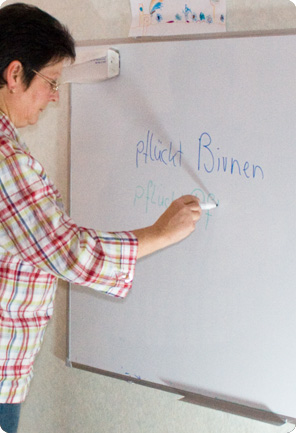 pflückt Birnen
pflückt